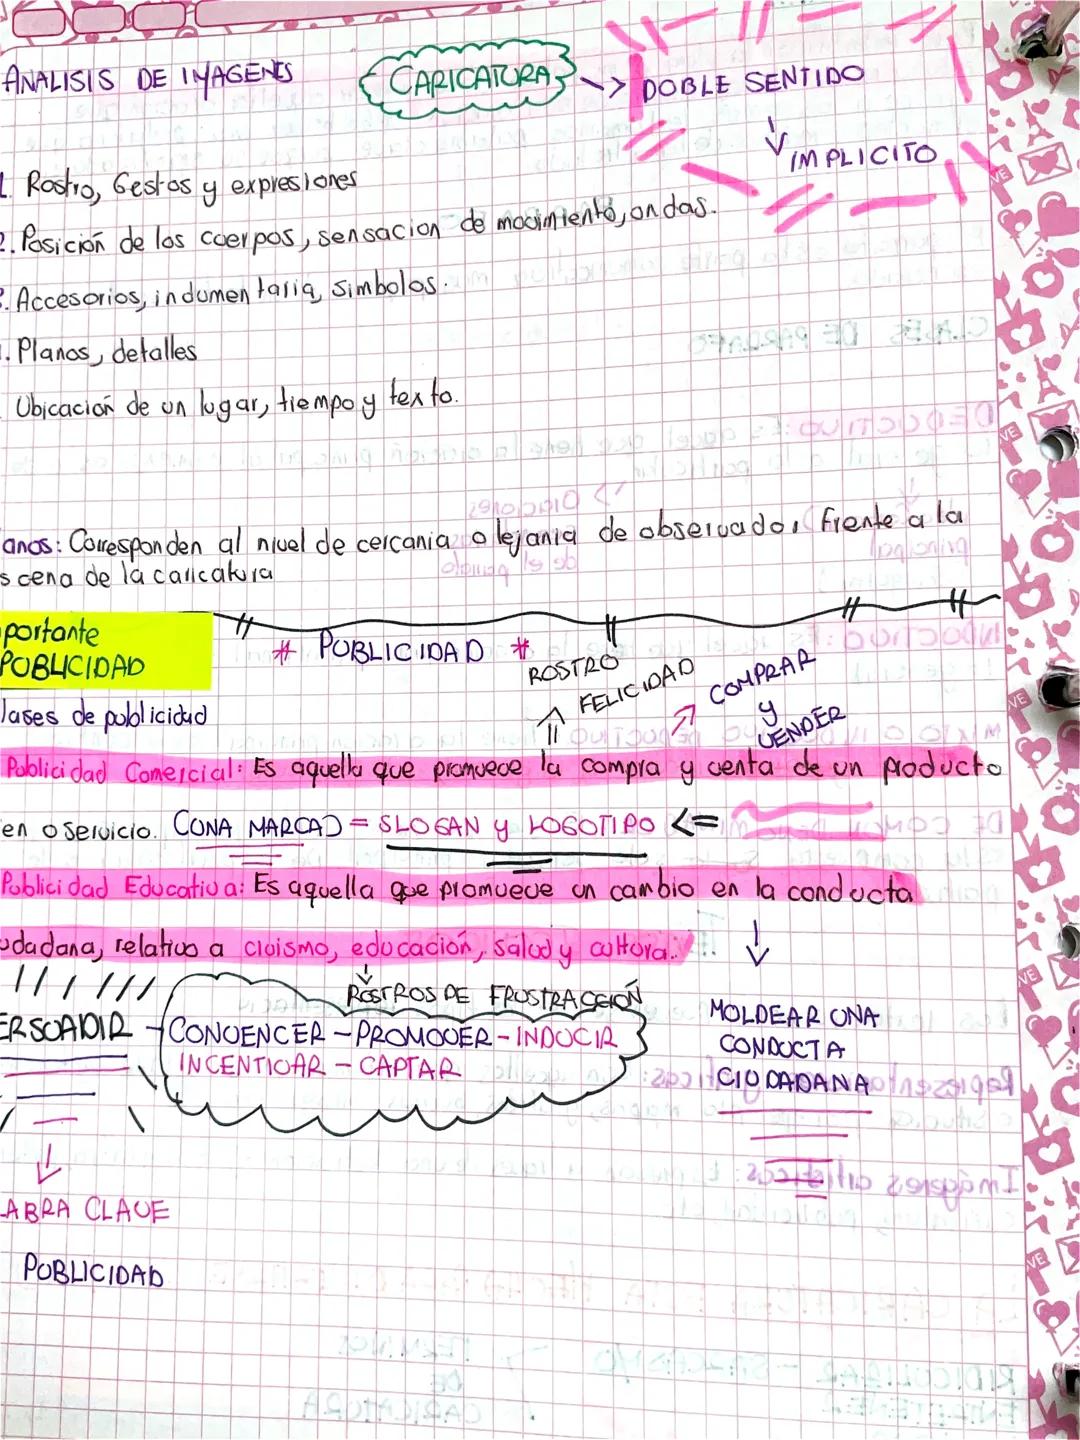 ANALISIS DE IMAGENES
CARICATURA -> DOBLE SENTIDO
IMPLICITO
1. Rostro, Gestos y expresiones
2. Posición de los cuerpos, sensacion de movimiento, ondas.
3. Accesorios, indumentaria, simbolos.
. Planos, detalles
Ubicación de un lugar, tiempo y texto.
anos: Corresponden al nivel de cercania o lejania de observador frente a la
scena de la caricatura
portante
PUBLICIDAD
* PUBLICIDAD *
ROSTRO
FELICIDAD
COMPRAR
y
VENDER
lases de publicidad
Publicidad Comercial: Es aquella que promueve la compra y venta de un producto
en o servicio. (UNA MARCA) = SLOGAN y LOGOTIPO <=
Publicidad Educativa: Es aquella que promueve un cambio en la conducta
udadana, relativo a civismo, educación, salud y cultura.
ROSTROS DE FRUSTRACCIÓN
ERSUADIR - CONVENCER - PROMOVER - INDUCIR
INCENTIVAR - CAPTAR
MOLDEAR UNA
CONDUCTA
CIUDADANA
LABRA CLAVE
PUBLICIDAD